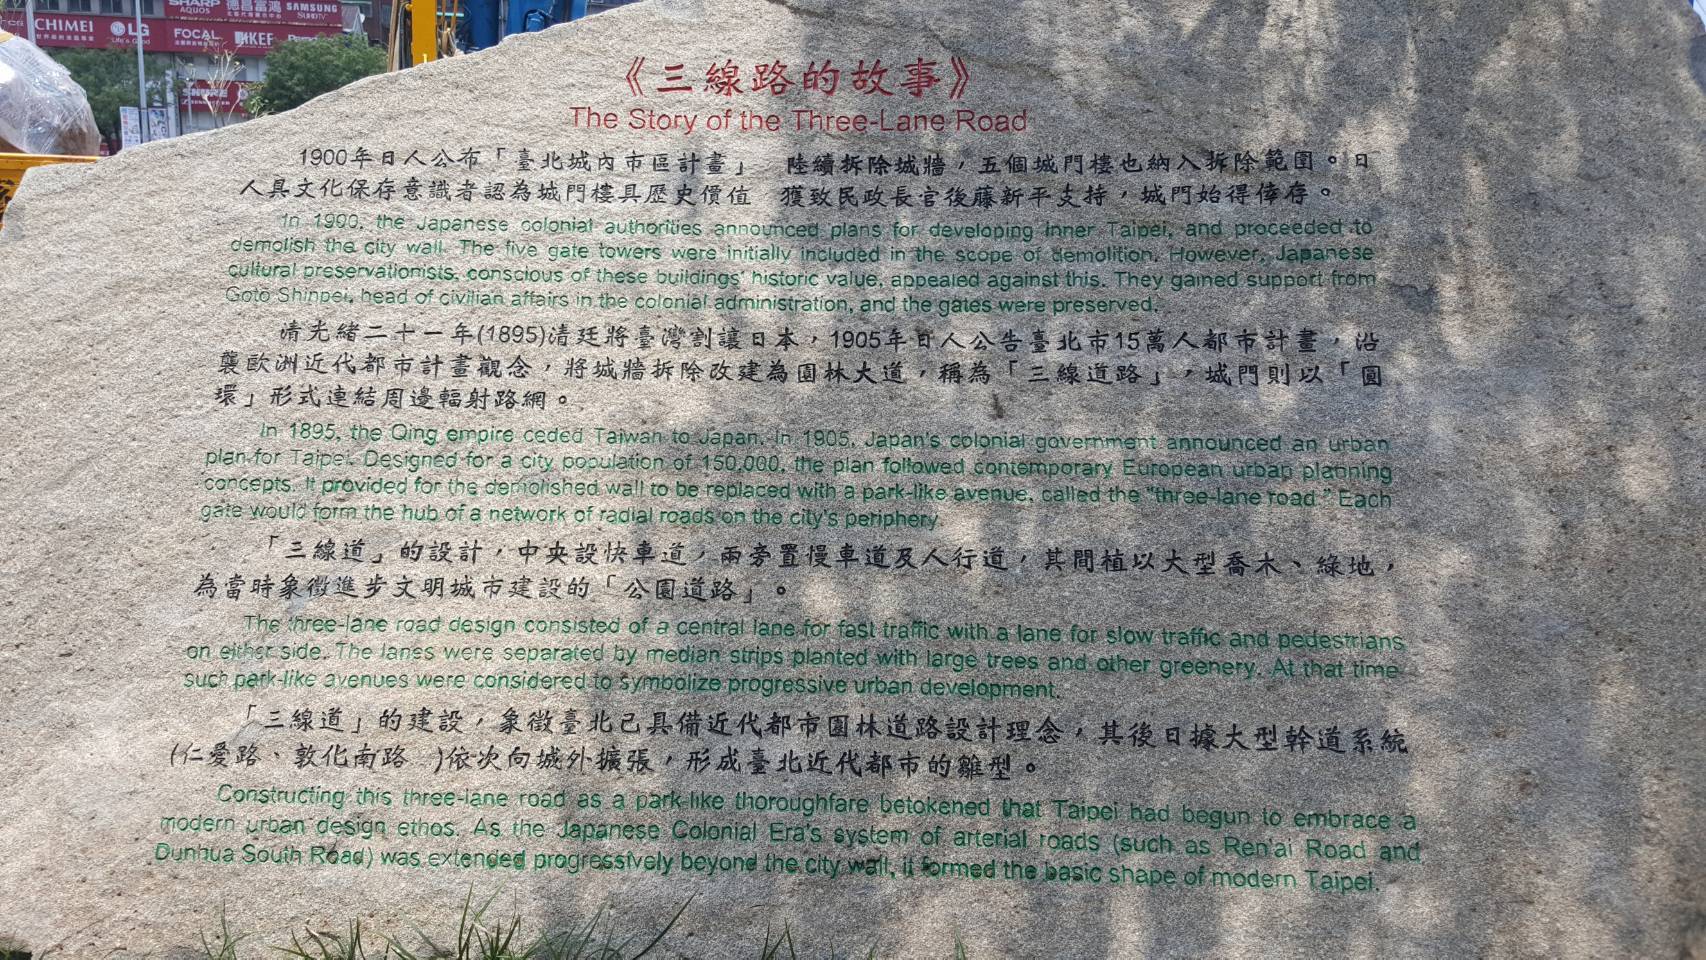 SHARP
AQUOS
德昌富鴻
SAMSUNG
SUHDTV
CHIMEI
LG
Life's Good
FOCAL
KEF
SHURE
《三線路的故事》
The Story of the Three-Lane Road
1900年日人公布「臺北城內市區計畫」 陸續拆除城牆，五個城門樓也納入拆除範圍。日
人具文化保存意識者認為城門樓具歷史價值 獲致民政長官後藤新平支持，城門始得倖存。
In 1900, the Japanese colonial authorities announced plans for developing inner Taipei, and proceeded to
demolish the city wall. The five gate towers were initially included in the scope of demolition. However, Japanese
cultural preservationists, conscious of these buildings' historic value, appealed against this. They gained support from
Gotō Shinpei, head of civilian affairs in the colonial administration, and the gates were preserved.
清光緒二十一年(1895)清廷將臺灣割讓日本，1905年日人公告臺北市15萬人都市計畫，沿
襲歐洲近代都市計畫觀念，將城牆拆除改建為園林大道，稱為「三線道路」，城門則以「圓
環」形式連結周邊輻射路網。
In 1895, the Qing empire ceded Taiwan to Japan. In 1905, Japan's colonial government announced an urban
plan for Taipei. Designed for a city population of 150,000, the plan followed contemporary European urban planning
concepts. It provided for the demolished wall to be replaced with a park-like avenue, called the "three-lane road." Each
gate would form the hub of a network of radial roads on the city's periphery.
「三線道」的設計，中央設快車道，兩旁置慢車道及人行道，其間植以大型喬木、綠地，
為當時象徵進步文明城市建設的「公園道路」。
The three-lane road design consisted of a central lane for fast traffic with a lane for slow traffic and pedestrians
on either side. The lanes were separated by median strips planted with large trees and other greenery. At that time
such park-like avenues were considered to symbolize progressive urban development.
「三線道」的建設，象徵臺北已具備近代都市園林道路設計理念，其後日據大型幹道系統
(仁愛路、敦化南路 )依次向城外擴張，形成臺北近代都市的雛型。
Constructing this three-lane road as a park-like thoroughfare betokened that Taipei had begun to embrace a
modern urban design ethos. As the Japanese Colonial Era's system of arterial roads (such as Ren'ai Road and
Dunhua South Road) was extended progressively beyond the city wall, it formed the basic shape of modern Taipei.